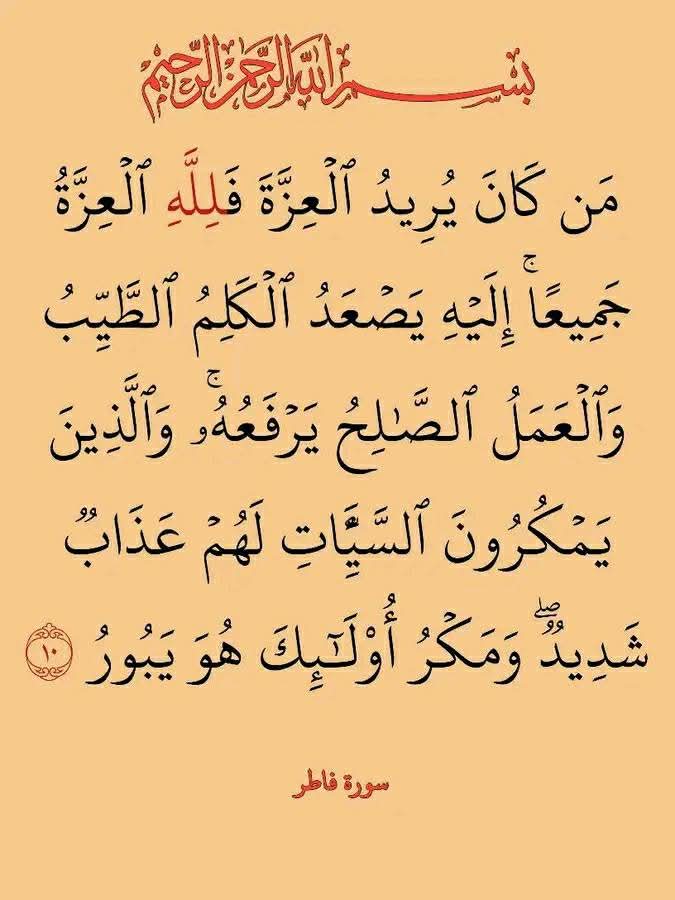 بسم الله الرحمن الرحيم
مَن كَانَ يُرِيدُ ٱلْعِزَّةَ فَلِلَّهِ ٱلْعِزَّةُ
جَمِيعًاۚ إِلَيْهِ يَصْعَدُ ٱلْكَلِمُ ٱلطَّيِّبُ
وَٱلْعَمَلُ ٱلصَّٰلِحُ يَرْفَعُهُۥۚ وَٱلَّذِينَ
يَمْكُرُونَ ٱلسَّيِّـَٔاتِ لَهُمْ عَذَابٌ
شَدِيدٌۖ وَمَكْرُ أُو۟لَٰٓئِكَ هُوَ يَبُورُ ١٠
سورة فاطر